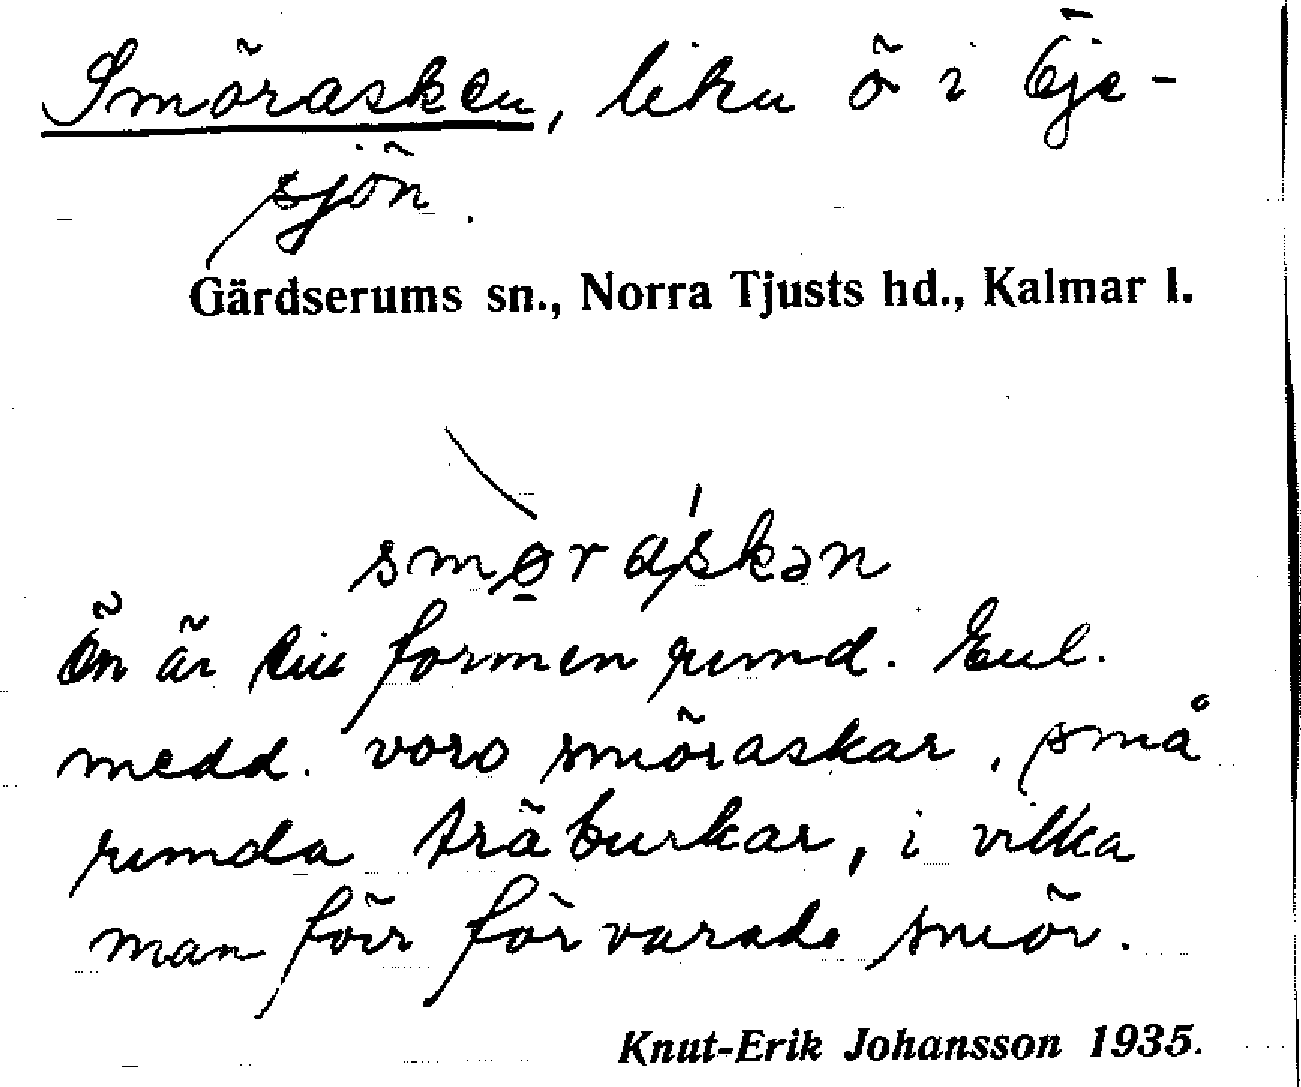 Smörasken, liten ö i Öje-
sjön.
Gärdserums sn., Norra Tjusts hd., Kalmar l.
smøráskən
Ön är till formen rund. Enl.
medd. voro smöraskar, små
runda träburkar, i vilka
man förr förvarade smör.
Knut-Erik Johansson 1935.